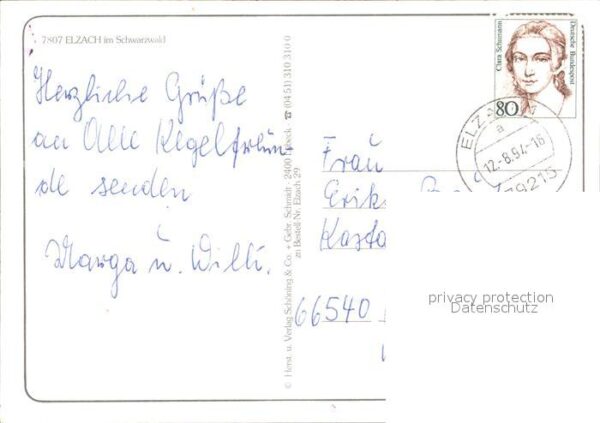 7807 ELZACH im Schwarzwald
Herzliche Grüße
an Alle Kegelfreun-
de senden
Marga u. Willi.
© Herst. u. Verlag Schöning & Co. + Gebr. Schmidt · 2400 Lübeck · ☎ (04 51) 310 310 0
zu Bestell-Nr. Elzach 29
Clara Schumann
Deutsche Bundespost
80
ELZACH
a
12.-8.94-16
79215
Frau
Erik
Kasta
66540
privacy protection
Datenschutz